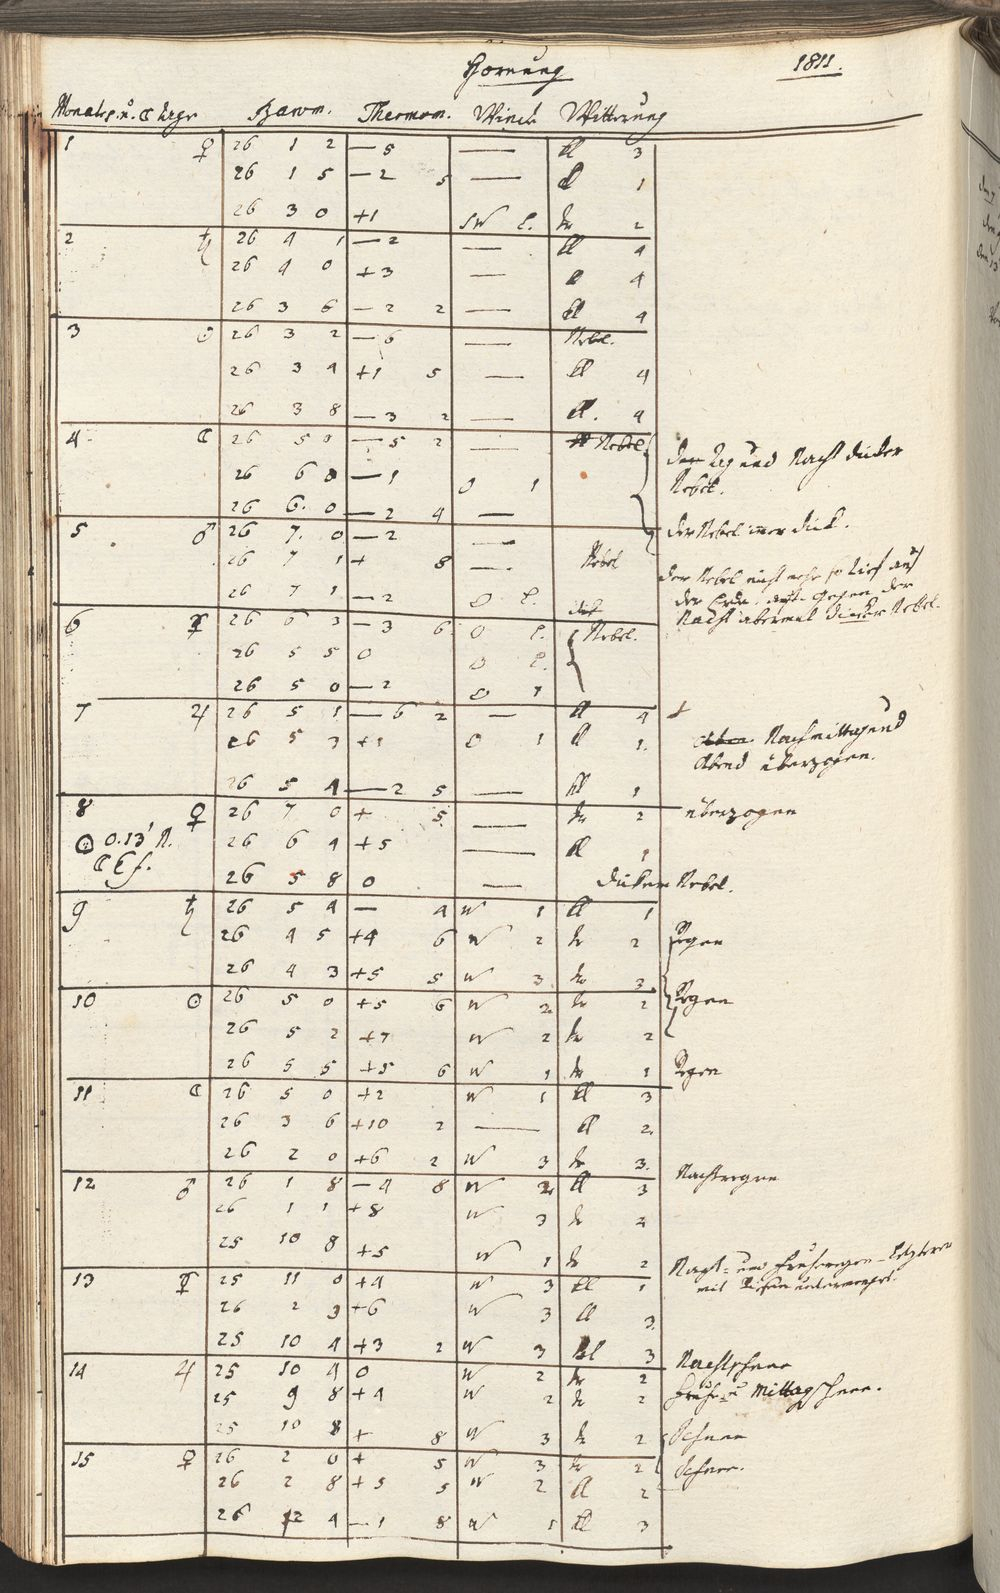 Hornung 1811.
Monats. u. ☾ tage Barom. Thermom. Wind Witterung
1 ♀ 26 1 2 — 5 — kl 3
26 1 5 — 2 5 — kl 1
26 3 0 +1 SW l. tr 2
2 ♄ 26 4 1 — 2 — kl 4
26 4 0 +3 — kl 4
26 3 6 — 2 2 — kl 4
3 ☉ 26 3 2 — 6 — Nebel.
26 3 4 +1 5 — kl 4
26 3 8 — 3 2 — kl. 4
4. ☾ 26 5 0 — 5 2 — Nebel den Tag und Nacht dicker
26 6 0 — 1 O 1 Nebel.
26 6. 0 — 2 4 —
5 ♂ 26 7. 0 — 2 — der Nebel immer dick.
26 7 1 + 8 — Nebel der Nebel nicht mehr so tief auf
26 7 1 — 2 O l. der Erde. gegen der
Nacht abermal dicker Nebel.
6 ☿ 26 6 3 — 3 6 O l. dick Nebel.
26 5 5 0 O l.
26 5 0 — 2 O 1
7 ♃ 26 5 1 — 6 2 — kl 4
26 5 3 +1 O 1 kl 1. Nachmittag und
Abend überzogen.
26 5 4 — 2 5 — kl 1
8 ♀ 26 7 0 + 5. — tr 2 überzogen
☉ 0.13' N. 26 6 4 +5 — kl 1
26 5 8 0 — dicker Nebel.
9 ♄ 26 5 4 — 4 W 1 kl 1
26 4 5 +4 6 W 2 tr 2 Regen
26 4 3 +5 5 W 3 tr 3
10 ☉ 26 5 0 +5 6 W 2 tr 2 Regen
26 5 2 +7 W 2 tr 2
26 5 5 +5 6 W 1 tr 1 Regen
11 ☾ 26 5 0 +2 W 1 kl 3
26 3 6 +10 2 — kl 2
26 2 0 +6 2 W 3 tr 3.
12 ♂ 26 1 8 — 4 8 W 2 kl 3 Nachtregen
26 1 1 +8 W 3 tr 2
25 10 8 +5 W 1 tr 2
13 ☿ 25 11 0 +4 W 3 kl 1 Nacht- und Frühregen – letzterer
mit untermengt.
26 2 3 +6 W 3 kl 3
25 10 4 +3 2 W 3 kl 3
14 ♃ 25 10 4 0 W 2 tr 2 Nachtschnee
25 9 8 +4 W 2 tr 2 Früh- u Mittagschnee.
25 10 8 + 8 W 3 tr 2 Schnee
15 ♀ 26 2 0 + 5 W 3 tr 2 Schnee.
26 2 8 +5 5 W 2 kl 2
26 2 4 — 1 8 W 1 kl 3